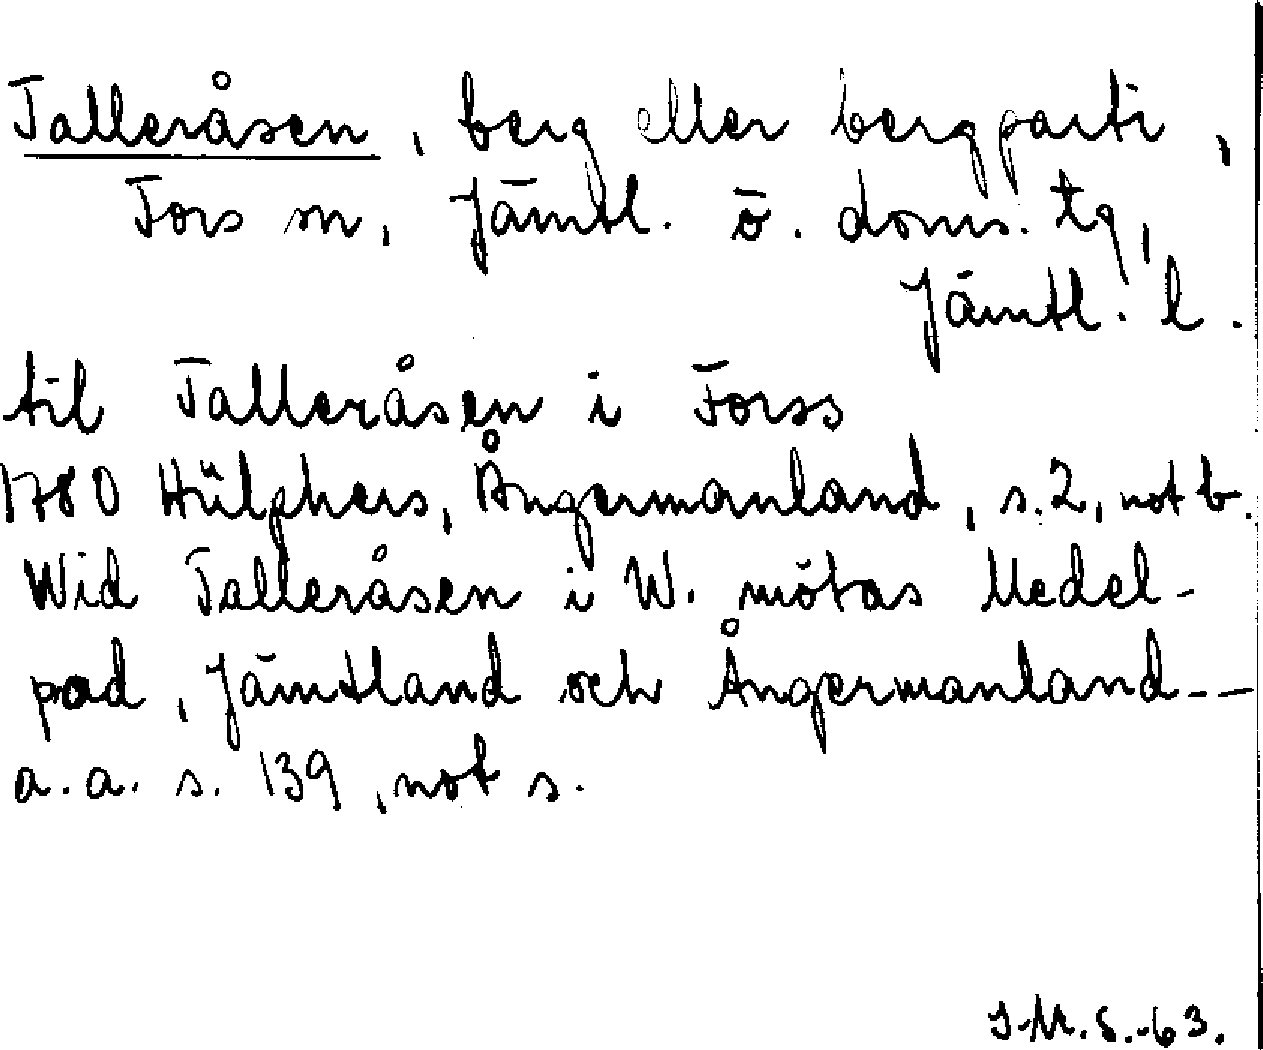 Talleråsen, berg eller bergparti,
Fors sn, Jämtl. ö. doms. tg,
Jämtl. l.
til Talleråsen i Forss
1780 Hülphers, Ångermanland, s. 2, not b.
Wid Talleråsen i W. mötas Medel-
pad, Jämtland och Ångermanland--
a. a. s. 139, not s.
J.M.S.-63.